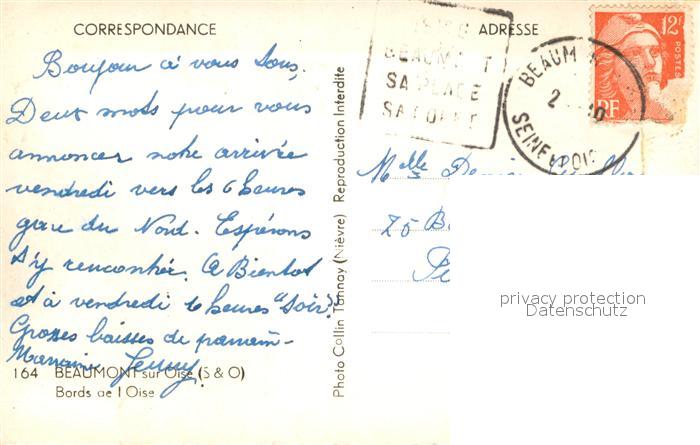 CORRESPONDANCE
ADRESSE
BEAUMONT
SA PLAGE
SA FORET
BEAUM
2
SEINE & OISE
12F
POSTES
RF
Bonjour à vous tous.
Deux mots pour vous
annoncer notre arrivée
vendredi vers les 6 heures
gare du Nord. Espérons
s'y rencontrer. A Bientot
et à vendredi 6 heures "soir".
Grosses baisses de parrain-
Marraine Jenny.
Melle
75 B
Photo Collin Tannay (Nièvre) Reproduction Interdite
164 BEAUMONT sur Oise (S & O)
Bords de l Oise
privacy protection
Datenschutz